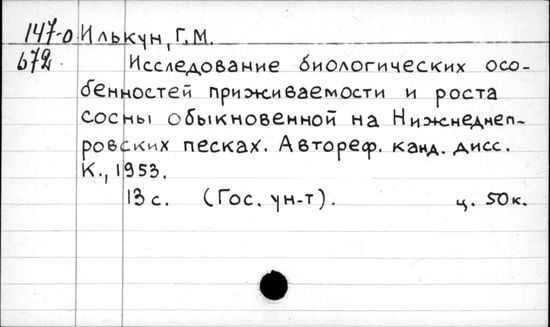 147-0 Илькун, Г.М.
672. Исследование биологических осо-
бенностей приживаемости и роста
сосны обыкновенной на Нижнеднеп-
ровских песках. Автореф. канд. дисс.
К., 1953.
13 с. (Гос. ун-т). ц. 50 к.